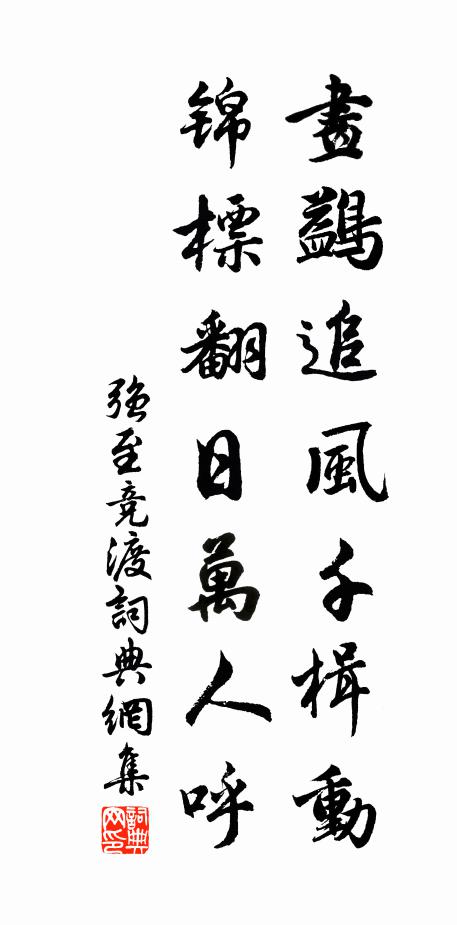 畫鷁追風千楫動
錦標翻日萬人呼
強至競渡詞典網集
詞典網印